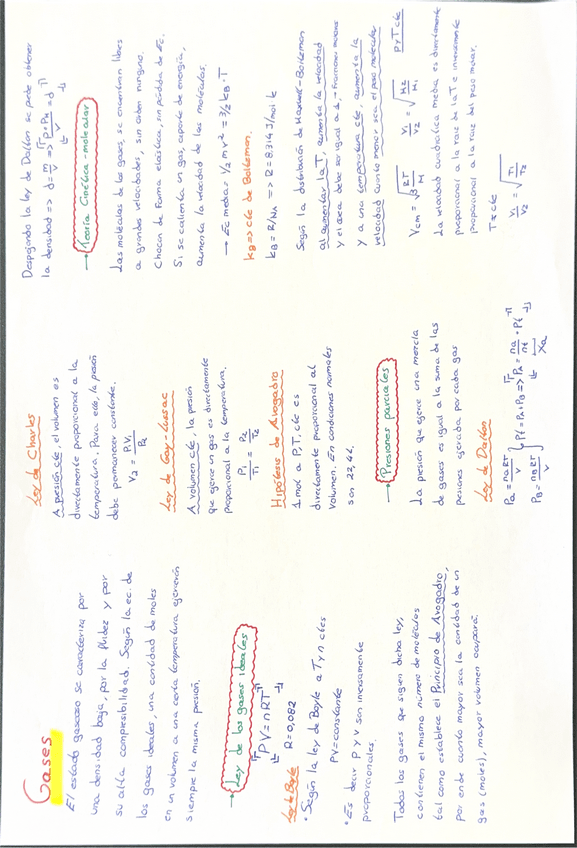 Gases
El estado gaseoso se caracteriza por
una densidad baja, por la fluidez y por
su alta compresibilidad. Según la ec. de
los gases ideales, una cantidad de moles
en un volumen a una cierta temperatura ejercerán
siempre la misma presión.
→ Ley de los gases ideales
PV = nRT
Ley de Boyle R=0,082
• Según la ley de Boyle a T y n ctes
PV=constante
• Es decir P y V son inversamente
proporcionales.
Todos los gases que siguen dicha ley,
contienen el mismo número de moléculas
tal como establece el Principio de Avogadro,
por ende cuanto mayor sea la cantidad de un
gas (moles), mayor volumen ocupará.
Ley de Charles
A presión cte, el volumen es
directamente proporcional a la
temperatura. Para ello, la presión
debe permanecer constante.
V2 = P1V1/P2
Ley de Gay-Lussac
A volumen cte, la presión
que ejerce un gas es directamente
proporcional a la temperatura.
P1/T1 = P2/T2
Hipótesis de Avogadro
1 mol a P,T, cte es
directamente proporcional al
volumen. En condiciones normales
son 22,4L.
→ Presiones parciales
La presión que ejerce una mezcla
de gases es igual a la suma de las
presiones ejercida por cada gas
Ley de Dalton
PA = nART/V
PB = nBRT/V } PT = PA+PB => PA = nA/nt · Pt
XA
Despejando la ley de Dalton se puede obtener
la densidad => d = m/V => P·PM = d
→ Teoría Cinética-molecular
Las moléculas de los gases, se encuentran libres
a grandes velocidades, sin orden ninguno.
Chocan de forma elástica, sin pérdida de Ec.
Si se calienta un gas, aporte de energía,
aumenta la velocidad de las moléculas.
→ Ec media: 1/2 m v² = 3/2 kB·T
kB => cte de Boltzman.
kB = R/NA => R = 8.314 J/mol k
Según la distribución de Maxwell-Boltzman
al aumentar la T, aumenta la velocidad
y el área debe ser igual a 1 → Fracciones molares
y a una temperatura cte, aumenta la
velocidad cuanto menor sea el peso molecular
Vcm = √3RT/M V1/V2 = √M2/M1 P y T cte
La velocidad cuadrática media es directamente
proporcional a la raíz de la T e inversamente
proporcional a la raíz del peso molar.
T ≠ cte
V1/V2 = √T1/T2